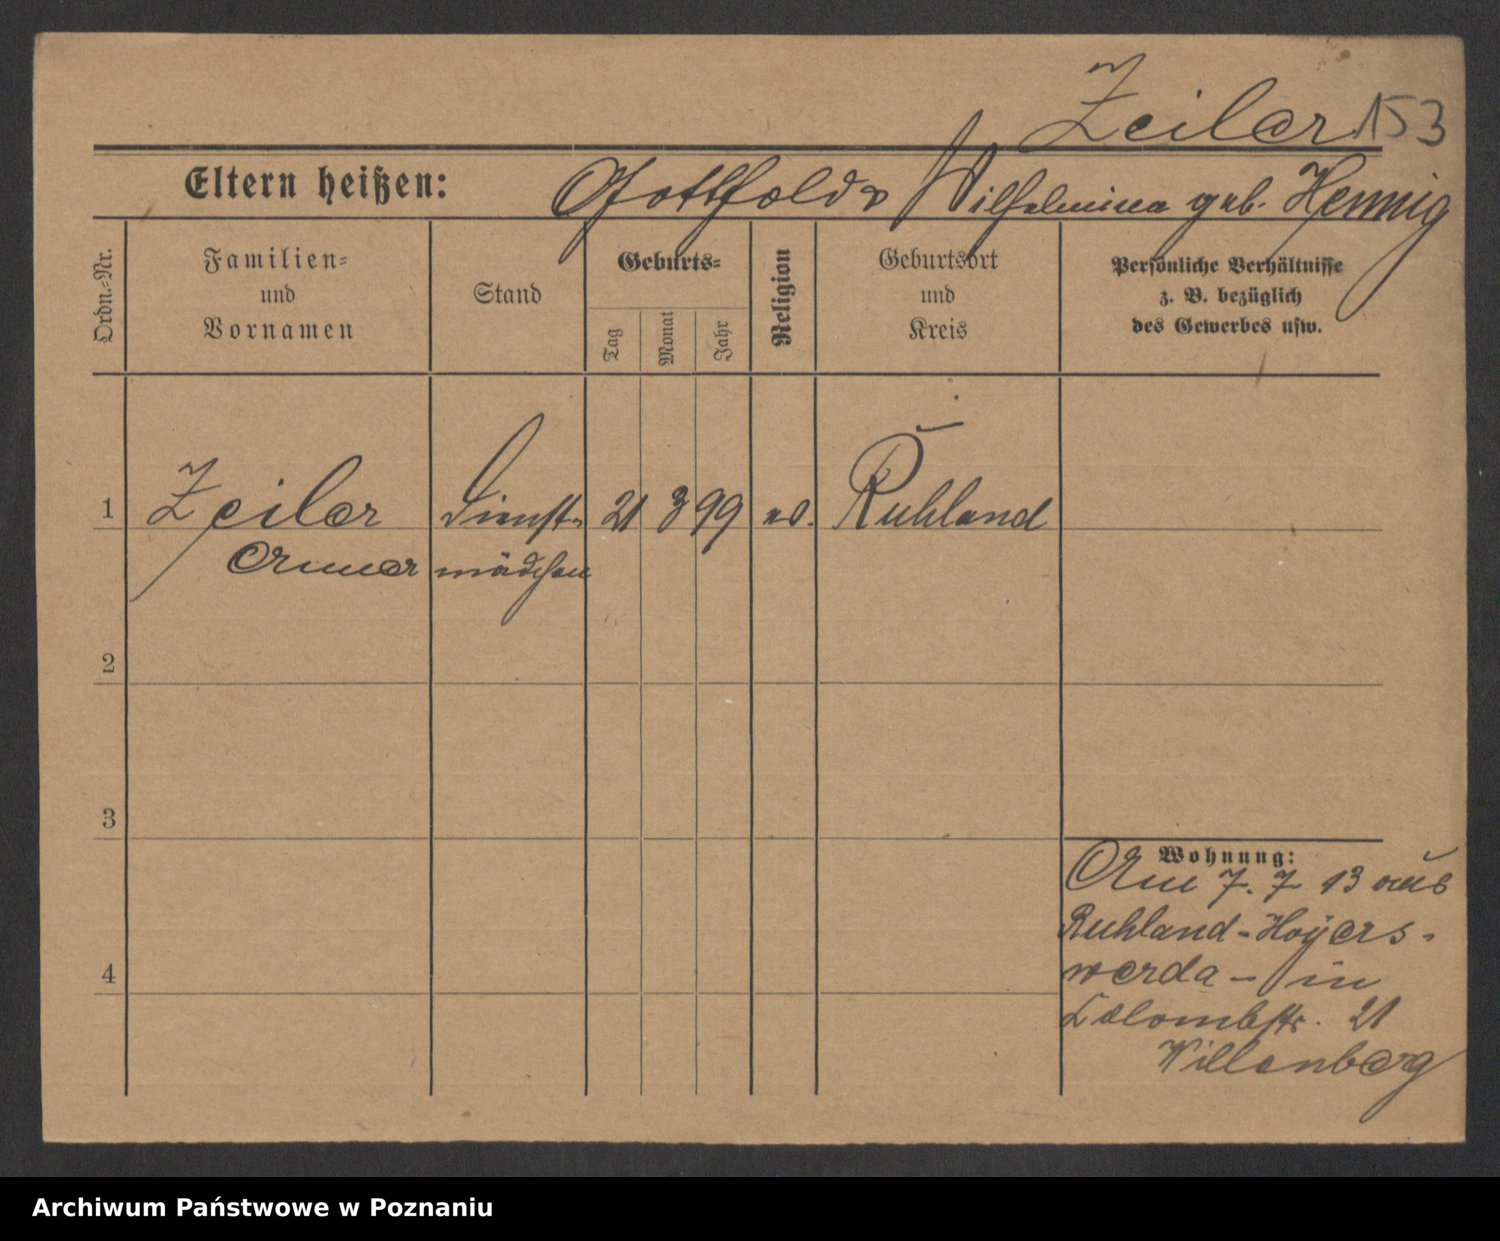 Zeiler 153
Eltern heißen: Gottfold u Wilhelmina geb. Hennig
Ordn.-Nr.
Familien-
und
Vornamen
Stand
Geburts-
Tag
Monat
Jahr
Religion
Geburtsort
und
Kreis
Persönliche Verhältnisse
z. B. bezüglich
des Gewerbes usw.
1 Zeiler Dienst- 21 3 99 ev. Ruhland
Anna mädchen
2
3
Wohnung:
Am 7. 7 13 aus
Ruhland-Hoyers-
4
werda - in
21
Willenberg
Archiwum Państwowe w Poznaniu